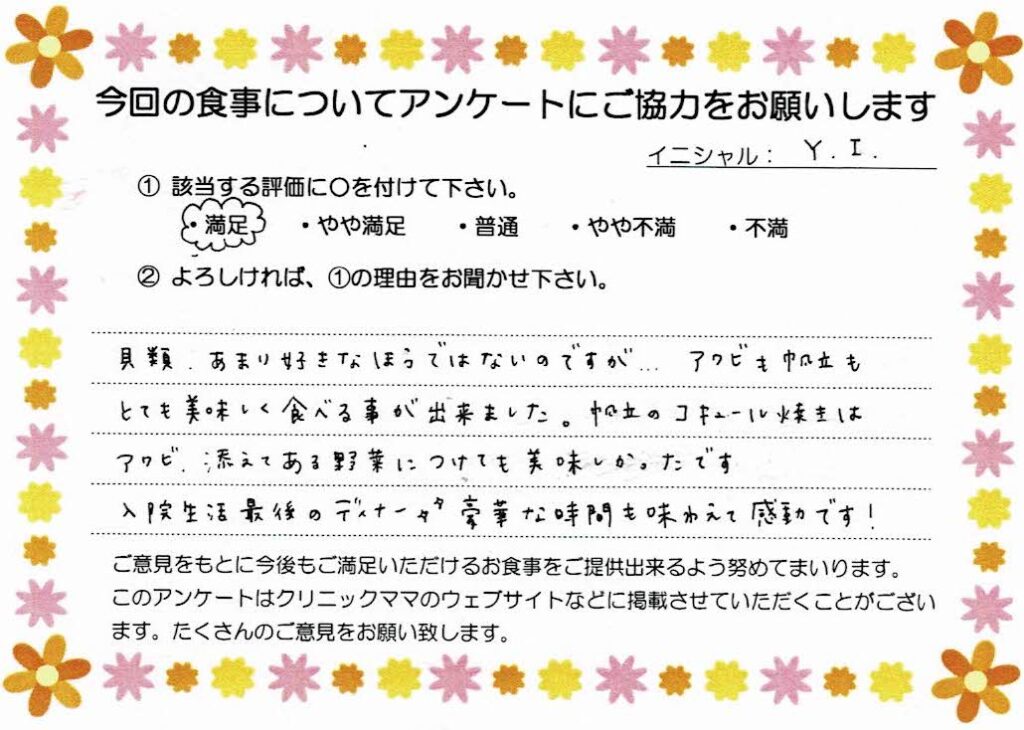 今回の食事についてアンケートにご協力をお願いします
イニシャル： Y. I.
① 該当する評価に〇を付けて下さい。
・満足 ・やや満足 ・普通 ・やや不満 ・不満
② よろしければ、①の理由をお聞かせ下さい。
貝類、あまり好きなほうではないのですが… アワビも帆立も
とても美味しく食べる事が出来ました。帆立のコキュール焼きは
アワビ、添えてある野菜につけても美味しかったです
入院生活最後のディナータ 豪華な時間も味わえて感動です!
ご意見をもとに今後もご満足いただけるお食事をご提供出来るよう努めてまいります。
このアンケートはクリニックママのウェブサイトなどに掲載させていただくことがござい
ます。たくさんのご意見をお願い致します。